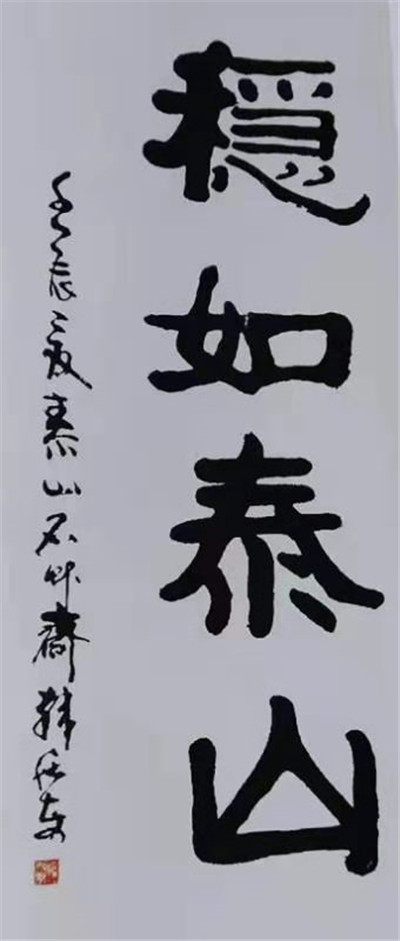 穩如泰山
壬辰之夏泰山石竹齋韓